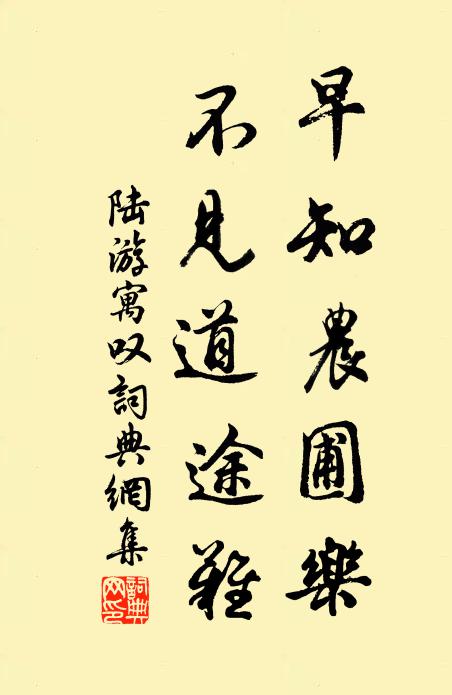 早知農圃樂
不見道途難
陆游寓叹詞典網集
詞典網印